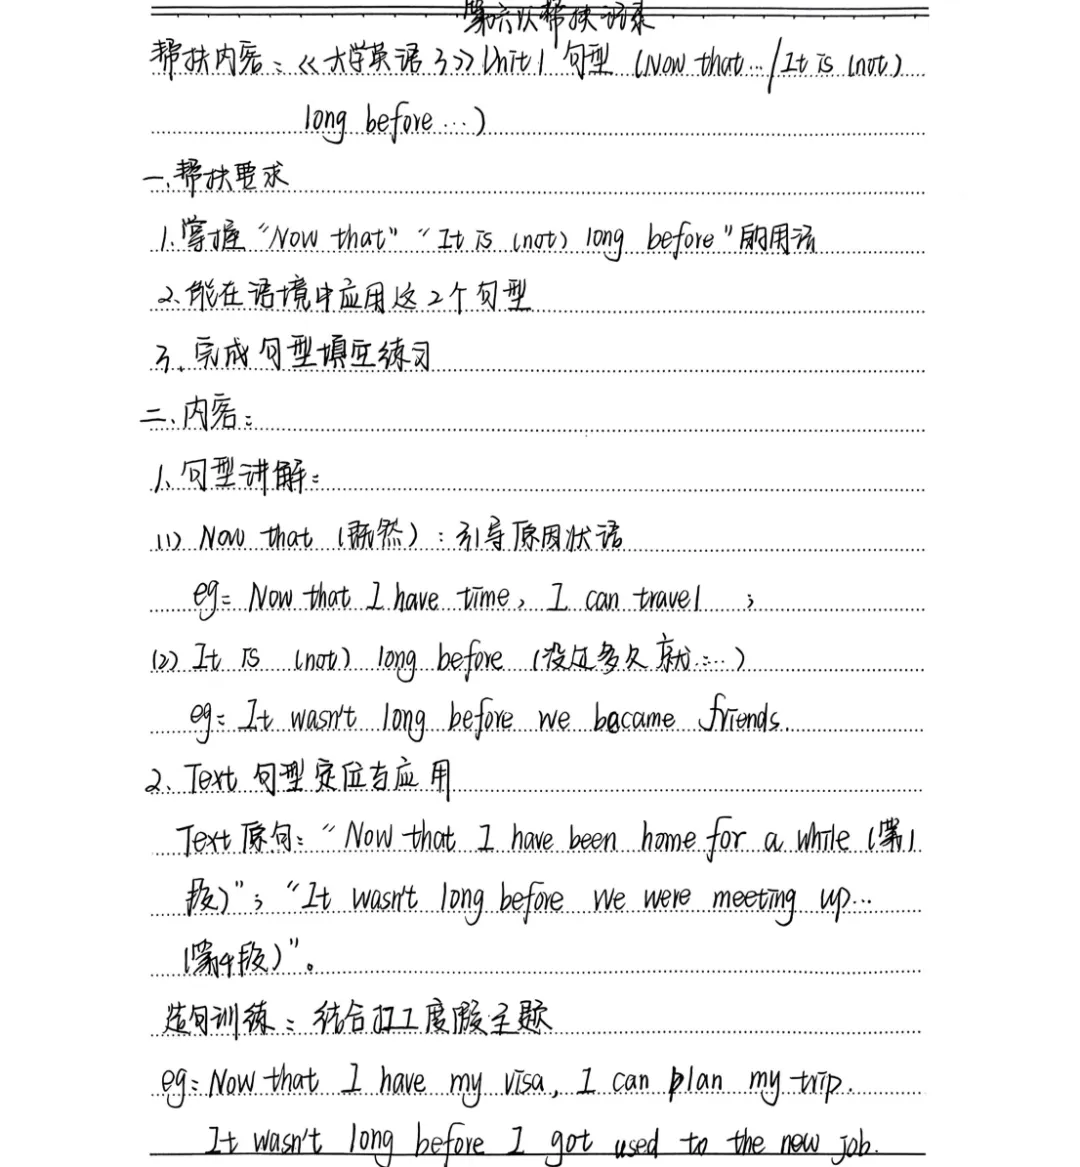 第六次帮扶记录
帮扶内容：《大学英语3》Unit 1 句型 (Now that… / It is (not)
long before …)
一、帮扶要求
1、掌握“Now that”“It is (not) long before”的用法
2、能在语境中应用这2个句型
3、完成句型填空练习
二、内容：
1、句型讲解：
(1) Now that (既然)：引导原因状语
eg: Now that I have time, I can travel ;
(2) It is (not) long before (没过多久就……)
eg: It wasn't long before we became friends.
2、Text 句型定位与应用
Text 原句：“Now that I have been home for a while (第1
段)”；“It wasn't long before we were meeting up…
(第4段)”。
造句训练：结合打工度假主题
eg: Now that I have my visa, I can plan my trip.
It wasn't long before I got used to the new job.